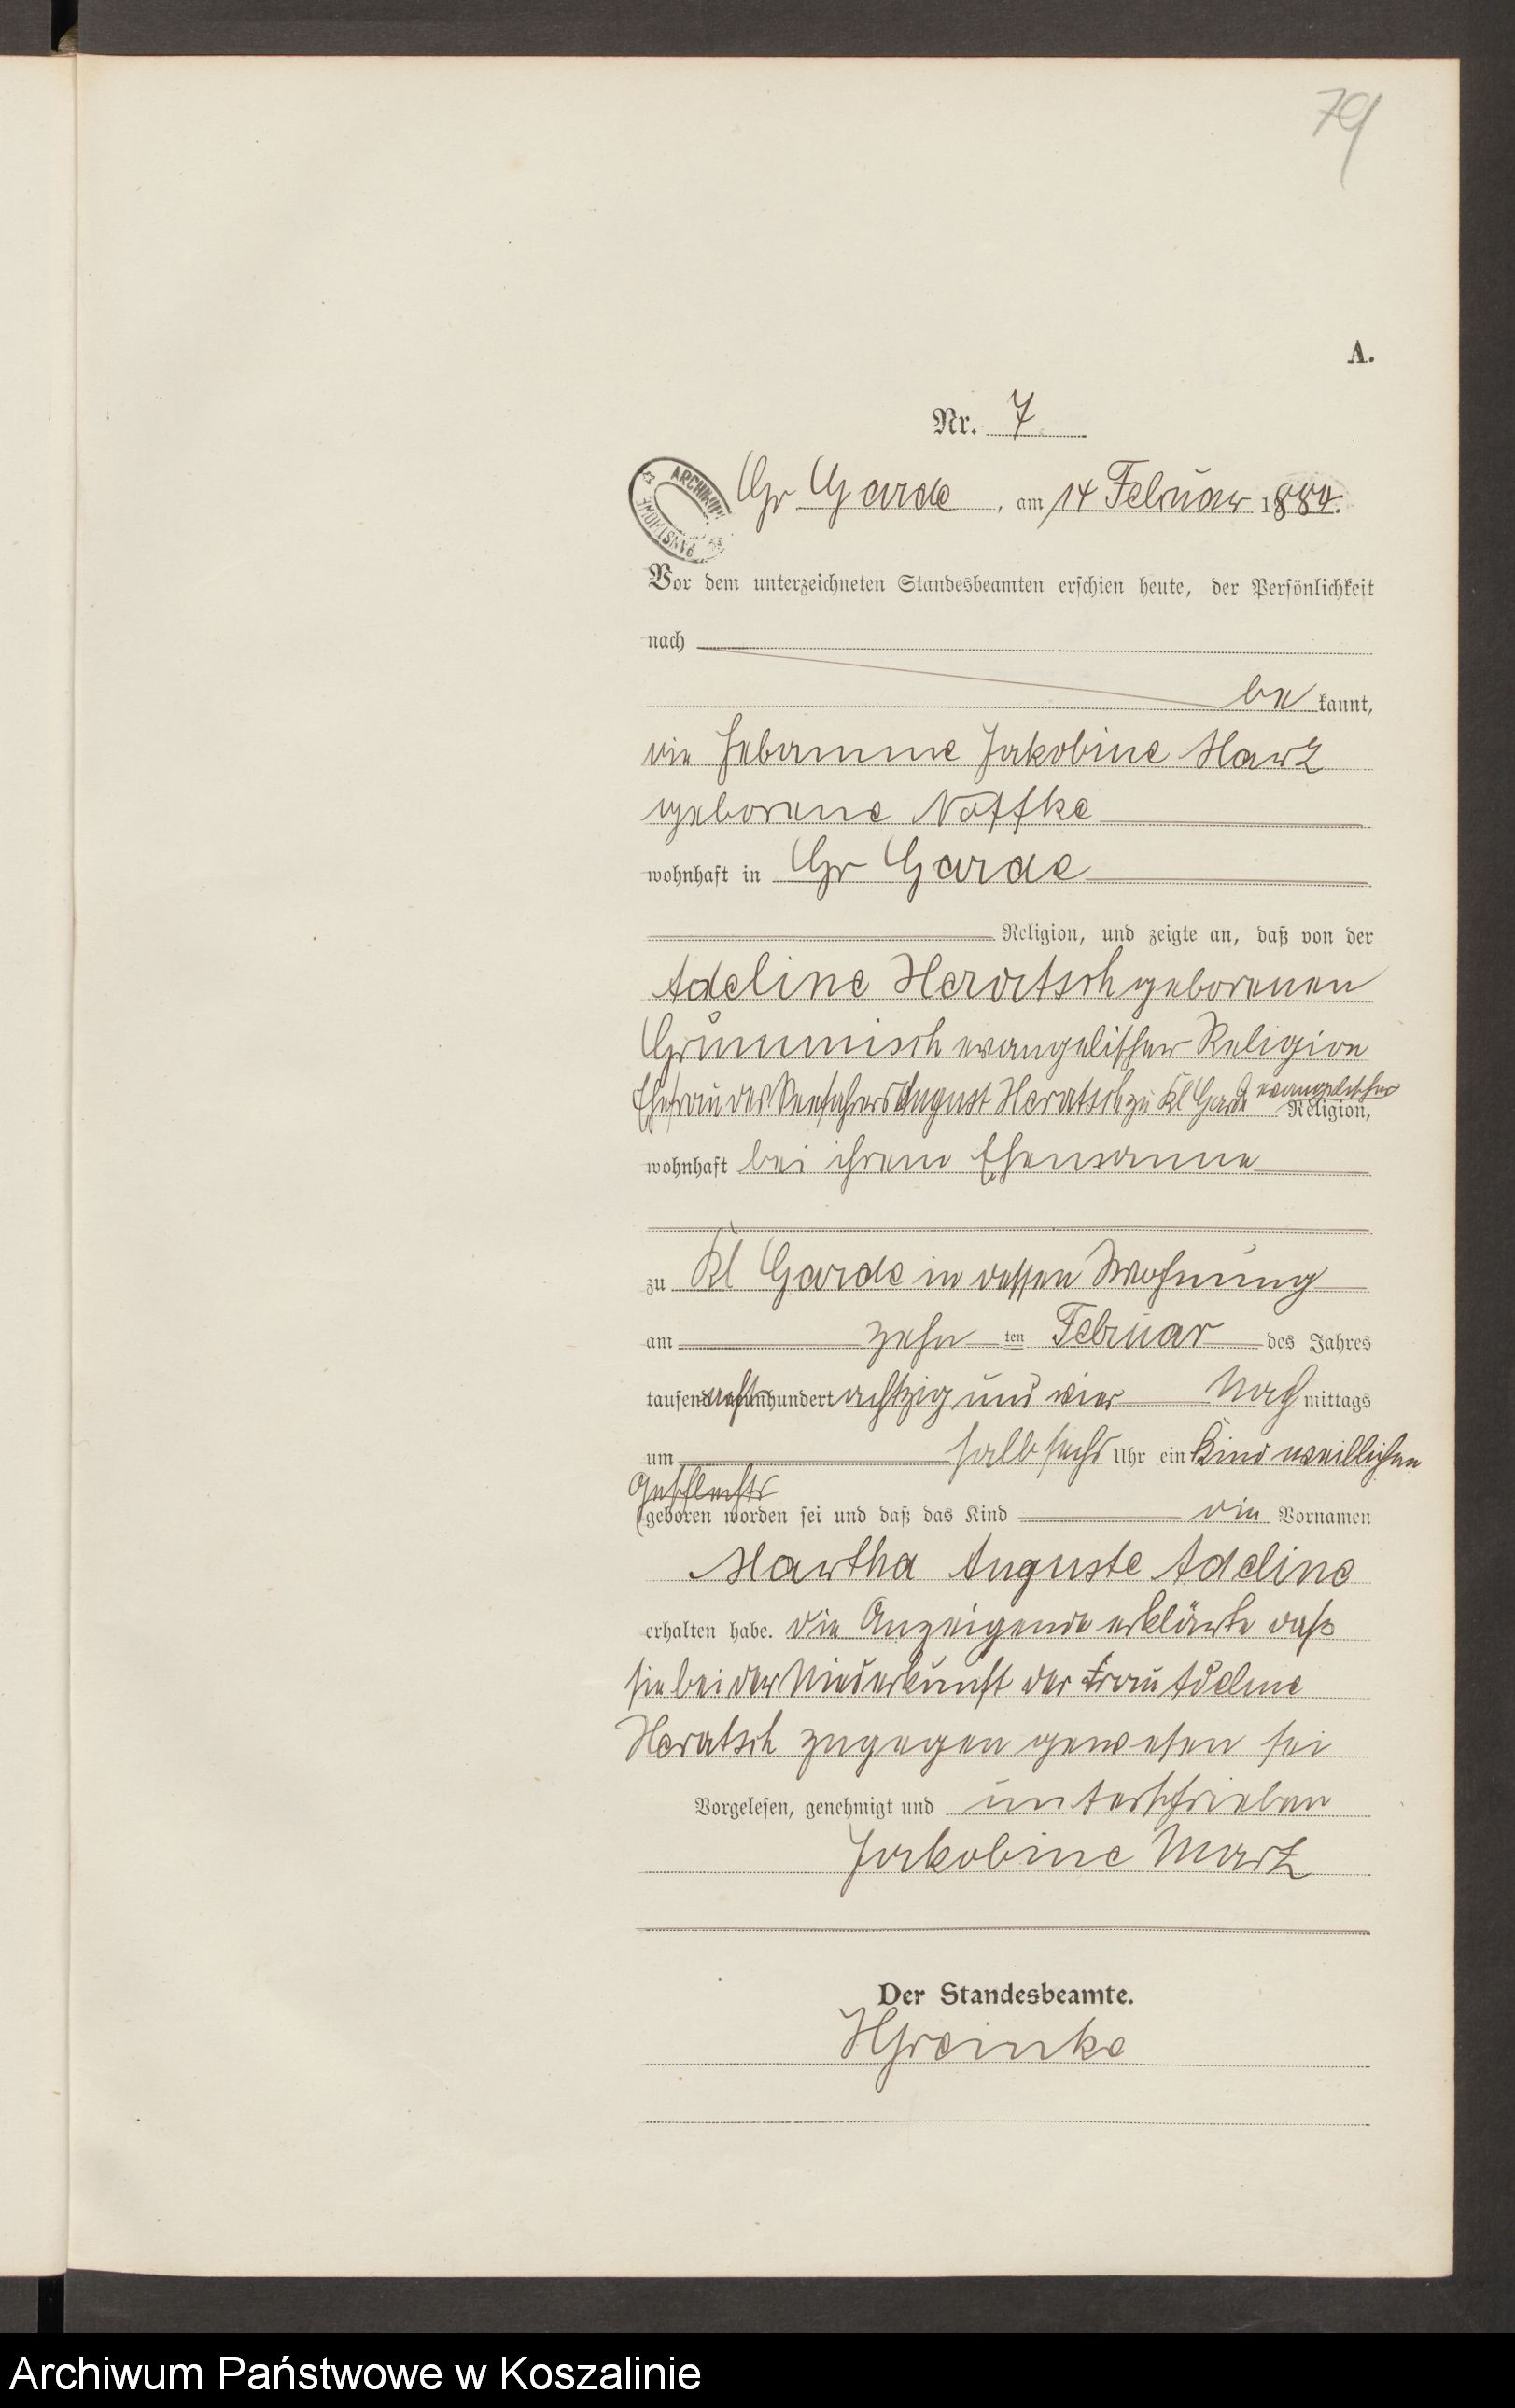 79
A.
Nr. 7
ARCHIWUM PAŃSTWOWE
Gr Garde, am 14 Februar 1884.
Vor dem unterzeichneten Standesbeamten erschien heute, der Persönlichkeit
nach
be kannt,
die Hebamme Jakobine Marz
geborene Noffke
wohnhaft in Gr Garde
Religion, und zeigte an, daß von der
Adeline Heratsch geborenen
Grummisch evangelischer Religion
Ehefrau des Seefahrers August Heratsch zu Kl Garde evangelischer Religion,
wohnhaft bei ihrem Ehemanne
zu Kl Garde in dessen Wohnung
am zehn ten Februar des Jahres
tausend achthundert achtzig und vier Nach mittags
um halb sechs Uhr ein Kind weiblichen
Geschlechts
geboren worden sei und daß das Kind die Vornamen
Martha Auguste Adeline
erhalten habe. Die Anzeigende erklärte daß
sie bei der Niederkunft der Frau Adeline
Heratsch zugegen gewesen sei
Vorgelesen, genehmigt und unterschrieben
Jakobine Marz
Der Standesbeamte.
HGreinke
Archiwum Państwowe w Koszalinie